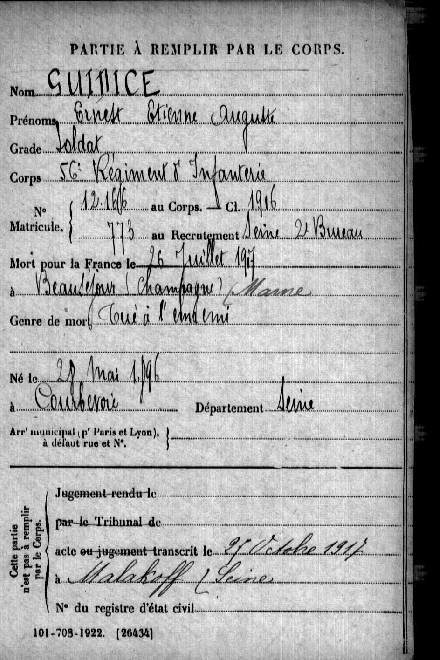 PARTIE À REMPLIR PAR LE CORPS.
Nom GUINICE
Prénoms Ernest Etienne Auguste
Grade Soldat
Corps 56e Régiment d'Infanterie
N° Matricule. { 12.166 au Corps. — Cl. 1916
773 au Recrutement Seine 2e Bureau
Mort pour la France le 26 Juillet 1917
à Beauséjour (Champagne) (Marne
Genre de mort Tué à l'ennemi
Né le 28 Mai 1896
à Courbevoie Département Seine
Arrt municipal (pr Paris et Lyon),
à défaut rue et N°.
Cette partie n'est pas à remplir par le Corps.
Jugement rendu le
par le Tribunal de
acte ou jugement transcrit le Octobre 1917
à Malakoff (Seine)
N° du registre d'état civil
101-708-1922. [26434]